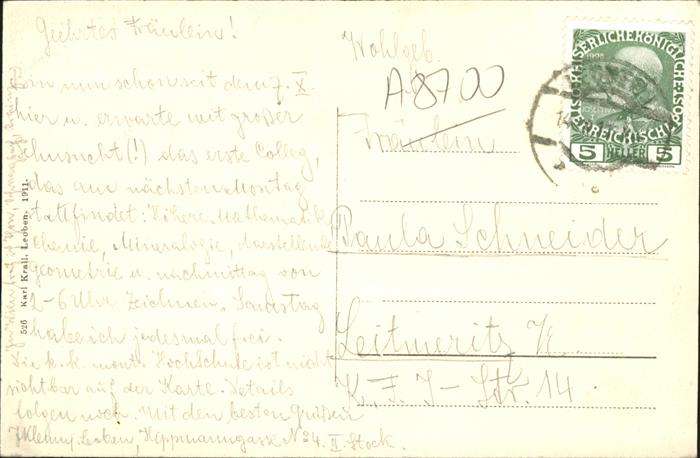 Geehrtes Fräulein!
Bin nun schon seit dem 7. X.
hier u. erwarte mit großer
Sehnsucht(!) das erste Colleg,
das am nächsten Montag
stattfindet: Höhere Mathematik,
Chemie, Mineralogie, darstellende
Geometrie u. nachmittag von
2-6 Uhr Zeichnen. Samstag
habe ich jedesmal frei.
Die k. k. mont. Hochschule ist nicht
sichtbar auf der Karte. Details
folgen noch. Mit den besten Grüßen
Leoben, No 4. II. Stock.
526 Karl Krall, Leoben. 1911.
Wohlgeb.
A 8700
Fräulein
Paula Schneider
Leitmeritz
K. F. J-Str. 14.
KAISERLICHEKÖNIGLICHE
ÖSTERREICHISCHE
5 HELLER 5